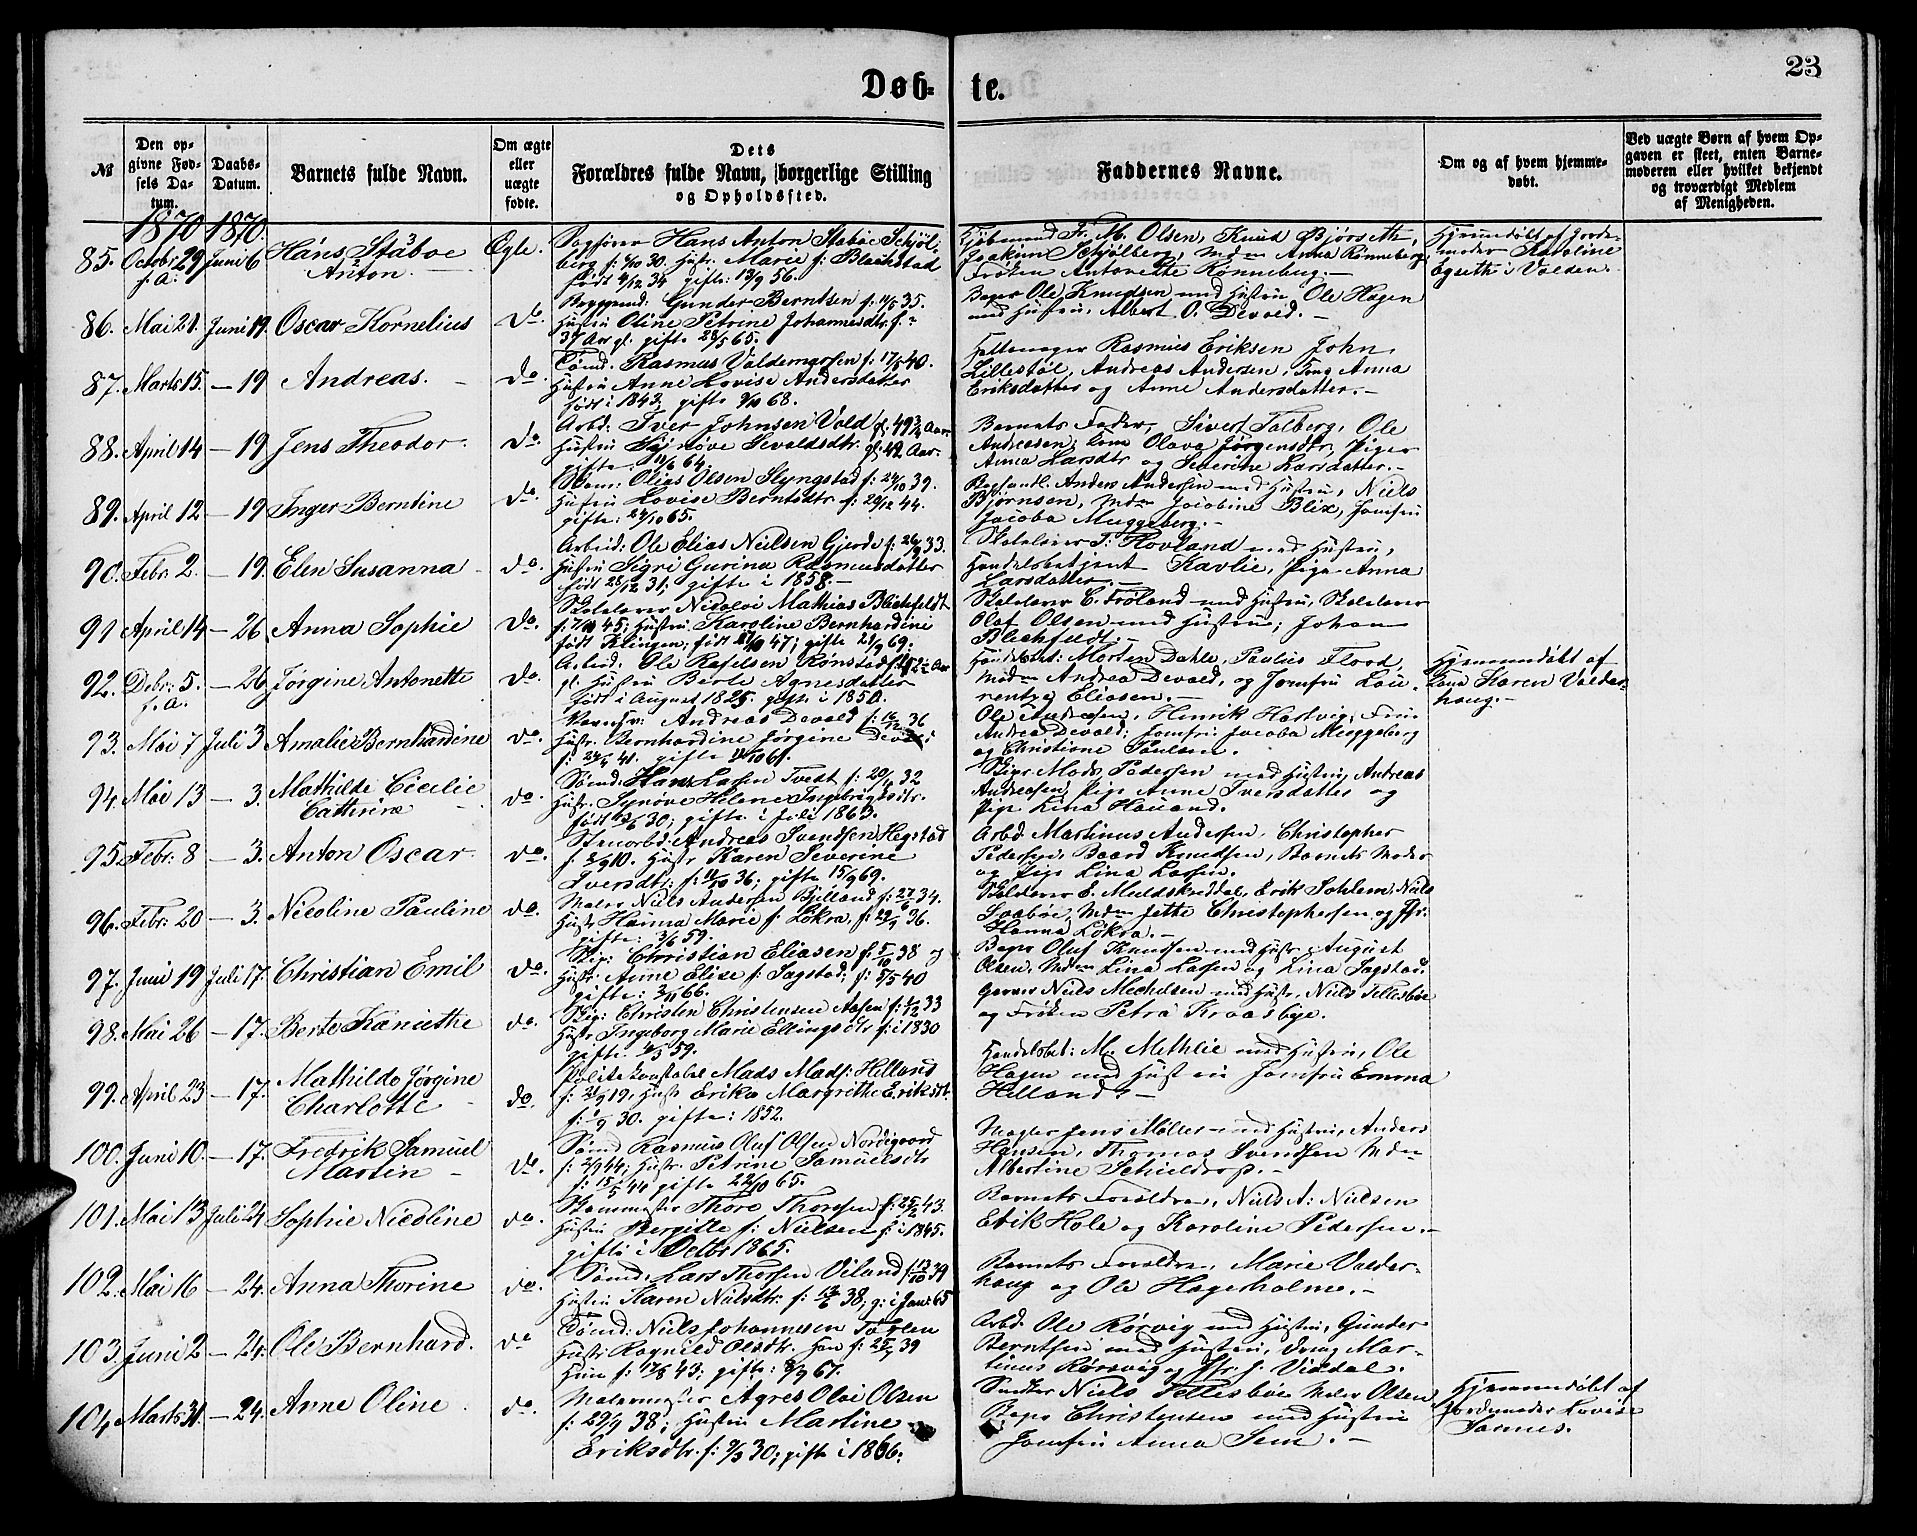 Døb-
te.
23
№
Den op-
givne Fød-
sels Da-
tum.
Daabs-
Datum.
Barnets fulde Navn.
Om ægte
eller
uægte
fødte.
Dets
Forældres fulde Navn, borgerlige Stilling
og Opholdssted.
Faddernes Navne.
Om og af hvem hjemme-
døbt.
Ved uægte Børn af hvem Op-
gaven er skeet, enten Barne-
moderen eller hvilket bekjendt
og troværdigt Medlem
af Menigheden.
1870 1870
85. Octobr 29 f. A. Juni 6 Hans Staboe Anton Ægte.
Hans Anton Stabøe Schjøl-
berg f: 30. Hustr. Marie f: Blackstad
født 34 gifte: 56.
F. Olsen, Knud Bjørseth,
Joakim Schjølberg, Mdm Anna Rønneberg
Frøken Antonette Rønneberg.
Hjemmedøbt af Jorde-
moder Karoline
Egseth i Volden.
86. Mai 21. Juni 19. Oscar Kornelius do.
Gunder Berntsen f: 35.
Hustru Oline Petrine Johannesdtr. f:
37 Aar gl. gifte 28/5 65.
Bager Ole Knudsen med Hustru, Ole Hagen
med Hustru, Albert O. Devold.
87. Marts 15. – 19 Andreas. do.
Tømd. Rasmus f: 17/5 40.
Hustru Anne Lovise Andersdatter
født i 1843, gifte 68.
Rasmus Eriksen John
Lillestøl, Andreas Andersen, Anna
Eriksdatter og Anne Andersdatter.
88. April 14 – 19 Jens Theodor. do.
Arbd. Iver Johnsen Vold gl. 49 3/4 Aar
Hustru Synøve Sevaldsdtr. gl. 42 Aar.
gifte 64.
Barnets Fader, Sivert Talberg, Ole
Andreasen, Kone Olava Jørgensdtr, Piger
Anna Larsdtr og Severine Larsdatter.
89. April 12 – 19 Inger Berntine do.
Olias Olsen Slyngstad f: 24/10 39.
Hustru Lovise Berntsdtr f: 20/12 44.
gifte: 65.
Anders Andersen med Hustru, Niels
Bjørnsen, Mdm Jacobine Blix, Jomfru
Jacoba Muggeberg.
90. Febr. 2. – 19. Elen Susanna do.
Arbeid: Ole Elias Nielsen Gjerde f: 26/9 33.
Hustru Sigri Gurina Rasmusdatter
født 28/12 31, gifte i 1858.
Skolelærer T. Hovland med Hustru,
Handelsbetjent Kavlie, Pige Anna
Larsdatter.
91 April 14 – 26 Anna Sophie do.
Skolelærer Nicolai Mathias Blichfeldt
45; Hustru Karoline Bernhardine
født Klingen, født 47; gifte 69.
Skolelærer C. Frøland med Hustru, Skolelærer
Olaf Olsen med Hustru; Johan
Blichfeldt.
92. Debr: 5. f. A. – 26 Jørgine Antonette do.
Arbeid. Ole Rafelsen Rønstad
gl. Hustru Berte Agnesdatter
født i August 1825 gifte i 1850.
Handelsbet: Morten Dahle, Paulius Flood,
Mdm Andrea Devold, og Jomfru Lau-
rentze Eliasen.
Hjemmedøbt af
Kone Karen Valder-
haug.
93. Mai 7 Juli 3 Amalie Bernhardine do.
Andreas Devold f: 16/12 36
Hustr. Bernhardine Jørgine Devold
f: 41. gifte 61.
Ole Andreasen, Henrik Hartvig, Fru
Andrea Devold; Jomfru Jacoba Muggeberg
og Christiane Paulsen.
94. Mai 13 – 3. Mathilde Cicilie Cathrine do.
Tømd. Hans Larsen Tvedt f: 32
Hustr. Synøve Helene Ingebrigtsdtr.
født 30, gifte i Juli 1863.
Skipr Mads Pedersen med Hustru, Andreas
Andreasen, Pige Anne Iversdatter og
Pige Lina Houand.
95. Febr: 8 – 3. Anton Oscar do.
Andreas Svendsen Hegstad
f: 10. Hustr Karen Severine
Iversdtr: f: 11/10 36; gifte 15/9 69.
Arbd Martinus Andersen, Christopher
Pedersen, Baard Knudsen, Barnets Moder
og Pige Lina Larsen.
96. Febr: 20 – 3. Nicoline Pauline do.
Maler Niels Andersen Bjelland f: 27/6 34.
Hustr Hanna Marie f: Løkra, f: 36.
gifte: 3/6 59.
Skolelærer E. Muldskreddal, Erik Sohlem, Niels
Mdm Jette Christophersen og Jfr:
Hanna Løkra.
97. Juni 19 Juli 17. Christian Emil do.
Skip: Christian Eliasen f: 5/10 38 og
Hustr: Anne Elise f: Sagstad; f: 8/5 40
gifte: 3/11 66.
Bager Oluf Knudsen med Hustr, August
Olsen, Mdm Lina Larsen og Lina Sagstad.
98. Mai 26 – 17. Berte Kaniethe do.
Skip: Christen Christensen Aasen f: 1/2 33
Hustr Ingeborg Marie Ellingsdtr f: i 1830
gifte 59.
Garver Niels Michelsen med Hustr, Niels Tellesbøe
og Frøken Petra Kraasbye.
99. April 23 – 17. Mathilde Jørgine Charlotte do.
Politikonstabel Mads Mads: Helland
f: 21/9 19, Hustr Erika Margrethe Eriksdtr.
f: 30. gifte: 1852.
Handelsbet: M. Methlie med Hustru, Ole
Hagen med Hustru Jomfru Emma
Helland.
100. Juni 10. – 17. Fredrik Samuel Martin do.
Tømd Rasmus Oluf Olsen Nordigaard
f: 2/9 44, Hustr. Petrine Samuelsdtr
f: 15/5 44 gifte 22/10 65.
Jens Møller med Hustru, Anders
Hansen, Thomas Svendsen Mdm
Albertine Schieldrop.
101. Mai 13 Juli 24 Sophie Nicoline do.
Thore Thoresen f: 25/2 43.
Hustru Bergitte f: Nielsen f: i 1845.
gifte i Octbr 1865.
Barnets Forældre, Niels A: Nielsen
Erik Hole og Karoline Pedersen.
102. Mai 16 – 24. Anna Thorine do.
Tømd. Lars Thorsen Viland f 12/10 39
Hustru Karen Nielsdtr. f: 38; g: i Jan: 65
Barnets Forældre, Marie Valder-
haug og Ole Hageholme.
103. Juni 2 – 24. Ole Bernhard. do
Tømd: Niels Johannesen
Hustr: Ragnild Olsdtr. Han f: 39
Hun f: 17/8 43; gifte: 67.
Arbd Ole Rørvig med Hustru, Gunder
Berntsen med Hustru, Dreng Mar-
tinus Rørsvig og Jfr. J. Viddal.
104 Marts 31. – 24. Anne Oline. do.
Malermester Agnes Olai Olsen
f: 29/7 38; Hustru Martine
Eriksdtr. f: 9/3 30; gifte i 1866.
Snedker Niels Tellesbøe Maler Olsen,
Bager Christensen med Hustru
Jomfru Anna Sem.
Hjemmedøbt af
Jordemoder Lovise
Sannes.